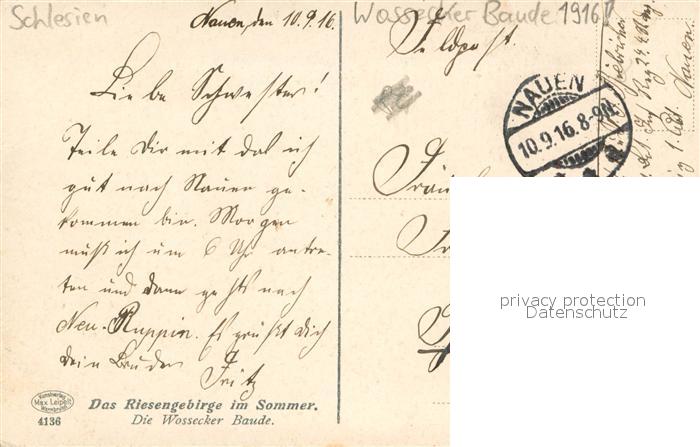 Schlesien
Wossecker Baude 1916
Nauen, den 10.9.16.
Feldpost.
Liebe Schwester!
Teile Dir mit daß ich
gut nach Nauen ge-
kommen bin. Morgen
muß ich um 6 Uhr antre-
ten und dann gehts nach
Neu-Ruppin. Es grüßt Dich
dein Bruder
Fritz
NAUEN
10.9.16.8-9N.
Nauen
privacy protection
Datenschutz
Kunstverlag
Max Leipelt
Warmbrunn
4136
Das Riesengebirge im Sommer.
Die Wossecker Baude.